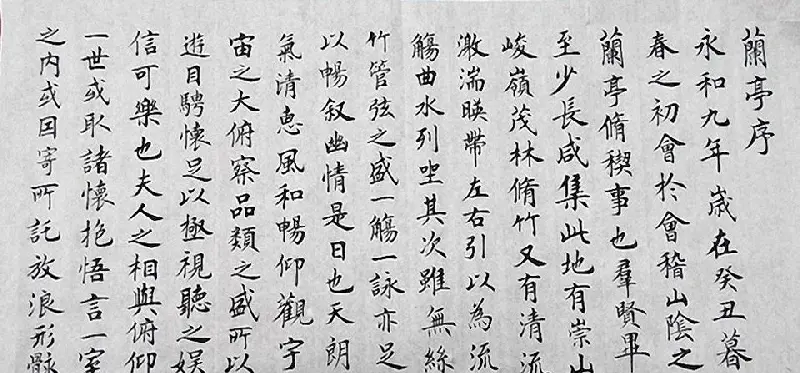 蘭亭序
永和九年歳在癸丑暮
春之初會於會稽山陰之
蘭亭脩稧事也羣賢畢
至少長咸集此地有崇山
峻嶺茂林脩竹又有清流
激湍暎帶左右引以為流
觴曲水列坐其次雖無絲
竹管弦之盛一觴一詠亦足
以暢叙幽情是日也天朗
氣清恵風和暢仰觀宇
宙之大俯察品類之盛所以
遊目騁懷足以極視聽之娱
信可樂也夫人之相與俯仰
一世或取諸懷抱悟言一室
之内或因寄所託放浪形骸